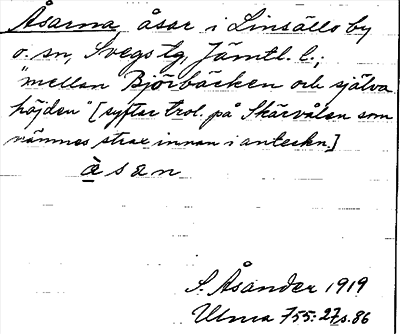 Åsarna, åsar i Linsällo by
o. sn, Svegs tg, Jämtl. l.;
"mellan Björbäcken och själva
höjden" [syftar trol. på Skärvålen som
nämnes strax innan i anteckn.]
åsan
S. Åsander 1919
Ulma 755:27, s. 86